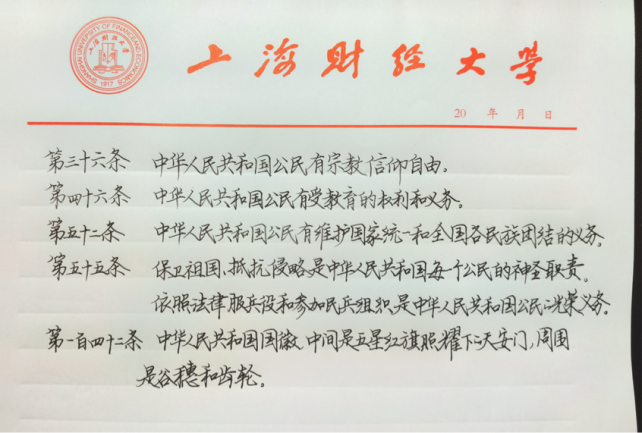 上海财经大学
20 年 月 日
第三十六条 中华人民共和国公民有宗教信仰自由。
第四十六条 中华人民共和国公民有受教育的权利和义务。
第五十二条 中华人民共和国公民有维护国家统一和全国各民族团结的义务。
第五十五条 保卫祖国、抵抗侵略是中华人民共和国每个公民的神圣职责。
依照法律服兵役和参加民兵组织是中华人民共和国公民的光荣义务。
第一百四十二条 中华人民共和国国徽,中间是五星红旗照耀下的天安门,周围
是谷穗和齿轮。
SHANGHAI UNIVERSITY OF FINANCE AND ECONOMICS
上海财经大学
1917